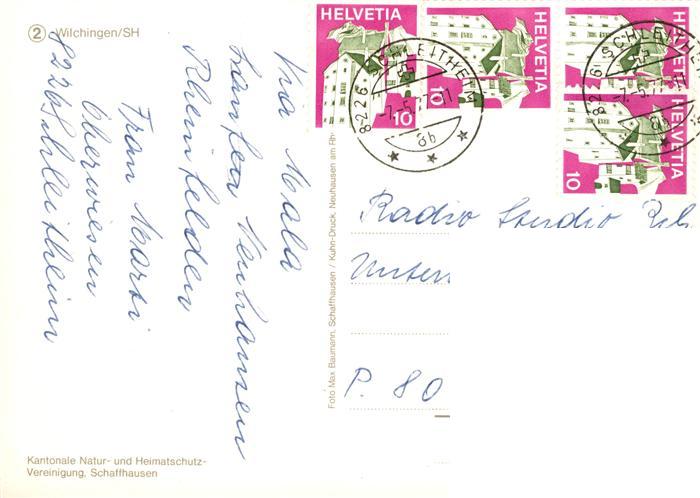 2 Wilchingen/SH
Via Mala
Laufen Neuhausen
Rheinfelden
Frau Marti
Oberwiesen
8226 Schleitheim
Kantonale Natur- und Heimatschutz-
Vereinigung, Schaffhausen
Foto Max Baumann, Schaffhausen / Kuhn-Druck, Neuhausen am Rh
HELVETIA
10
HELVETIA
10
HELVETIA
HELVETIA
10
8226 SCHLEITHEIM
-7.-5.77-17
8b
8226 SCHLEITHEIM
-7.-5.77-17
8b
Radio Studio
Unter
P. 80